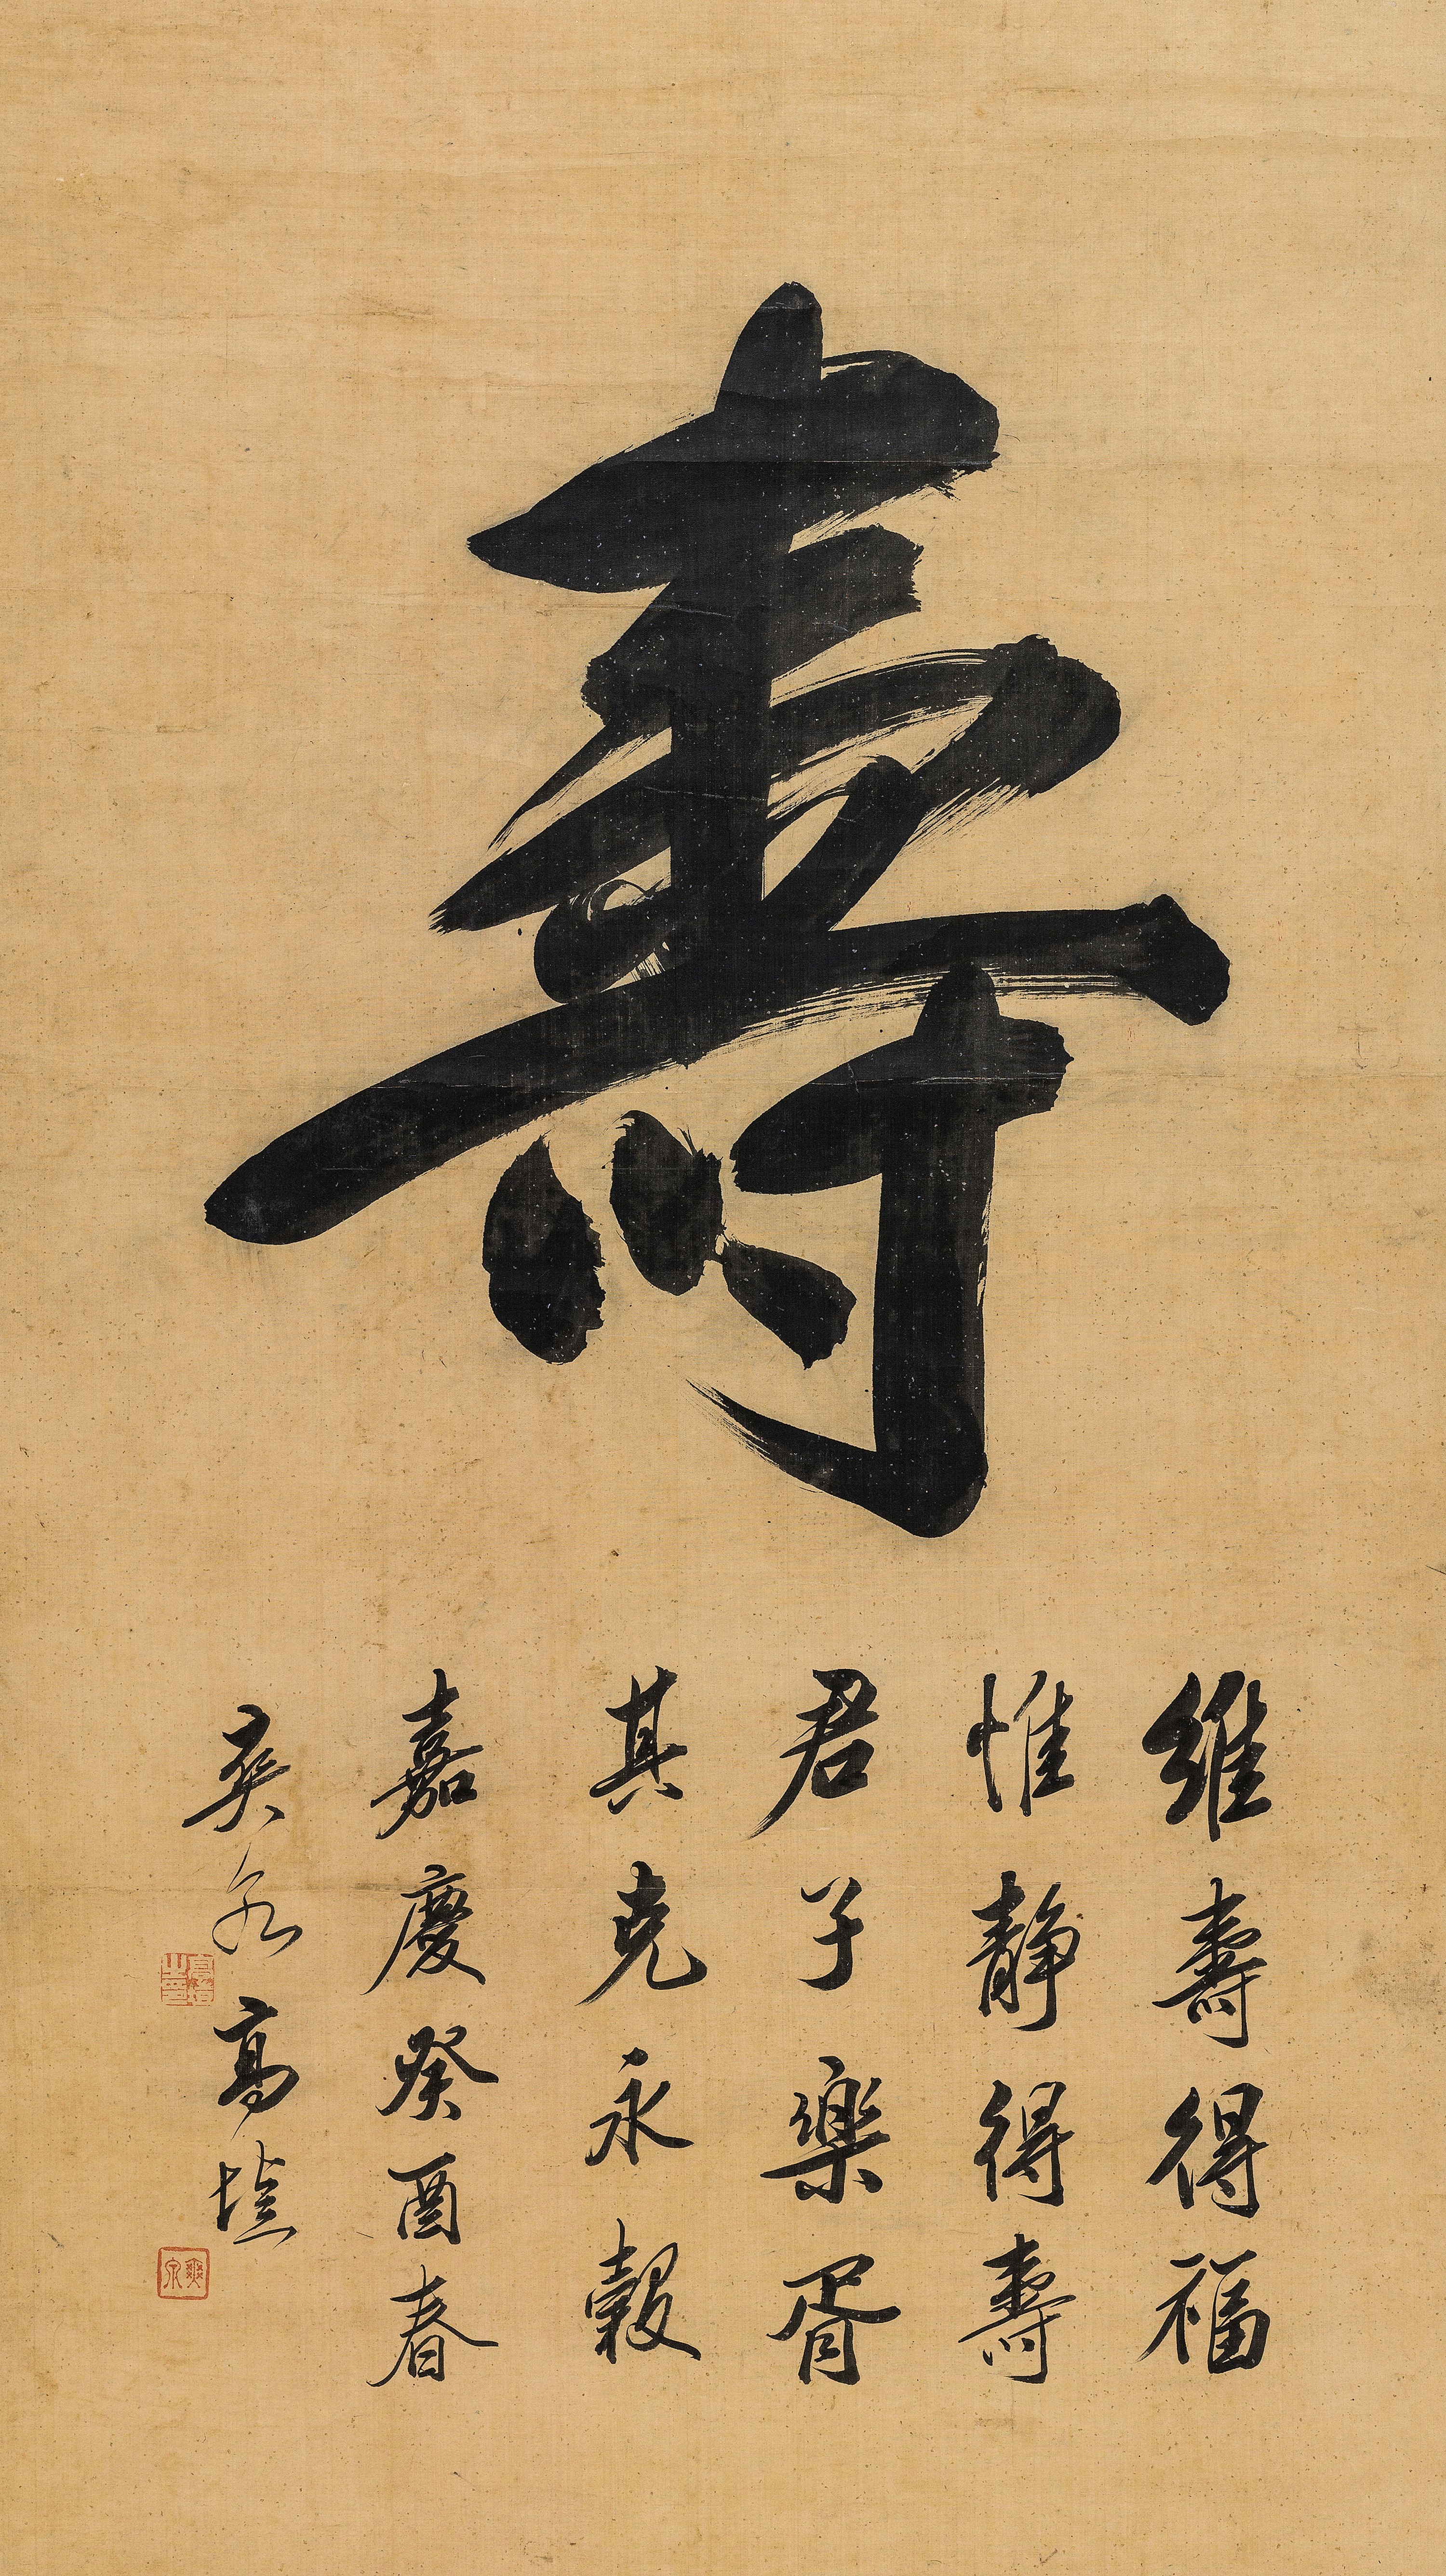 壽
維壽得福
惟靜得壽
君子樂胥
其克永穀
嘉慶癸酉春
爽泉高塏